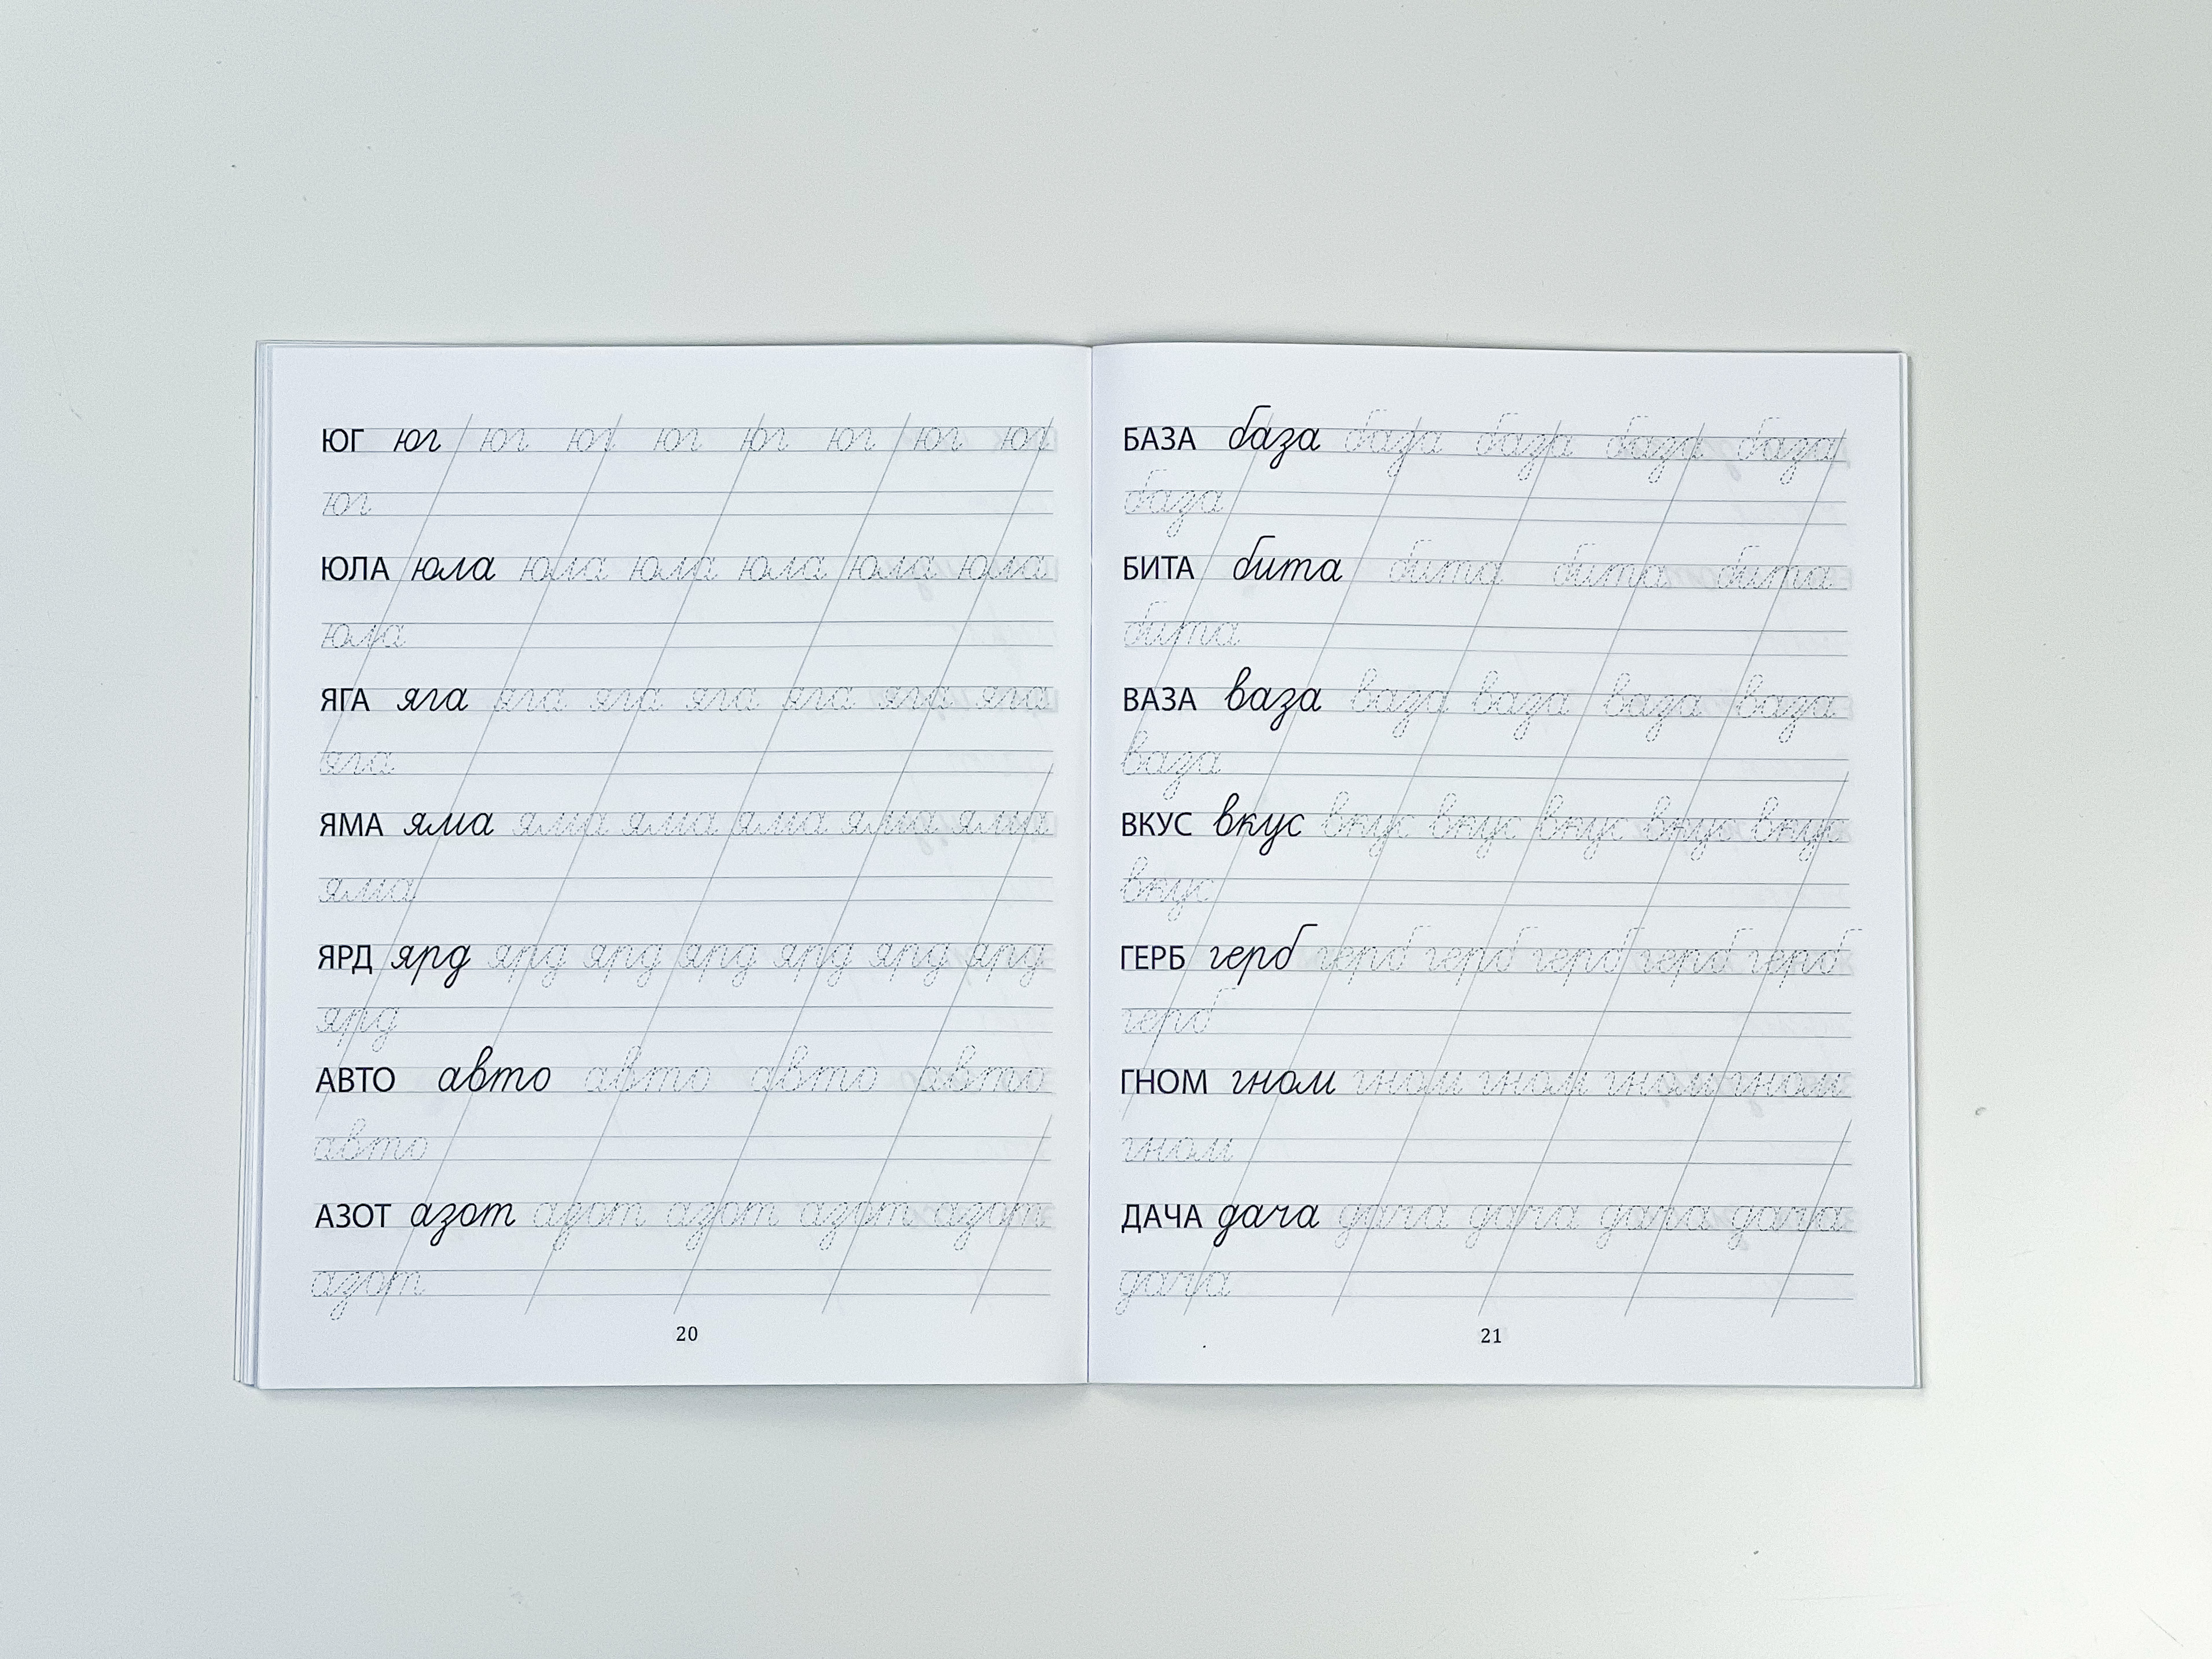 ЮГ юг юг юг юг юг юг юг юг
юг
ЮЛА юла юла юла юла юла юла
юла
ЯГА яга яга яга яга яга яга яга
яга
ЯМА яма яма яма яма яма яма
яма
ЯРД ярд ярд ярд ярд ярд ярд ярд
ярд
АВТО авто авто авто авто
авто
АЗОТ азот азот азот азот азот
азот
20
БАЗА база база база база база
база
БИТА бита бита бита бита
бита
ВАЗА ваза ваза ваза ваза ваза
ваза
ВКУС вкус вкус вкус вкус вкус вкус
вкус
ГЕРБ герб герб герб герб герб герб
герб
ГНОМ гном гном гном гном гном
гном
ДАЧА дача дача дача дача дача
дача
21